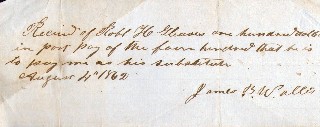 Received of Robt H Glaves one hundred dolls
in part pay of the four hundred that he is
to pay me as his substitute
August 4th 1862
James B Walls